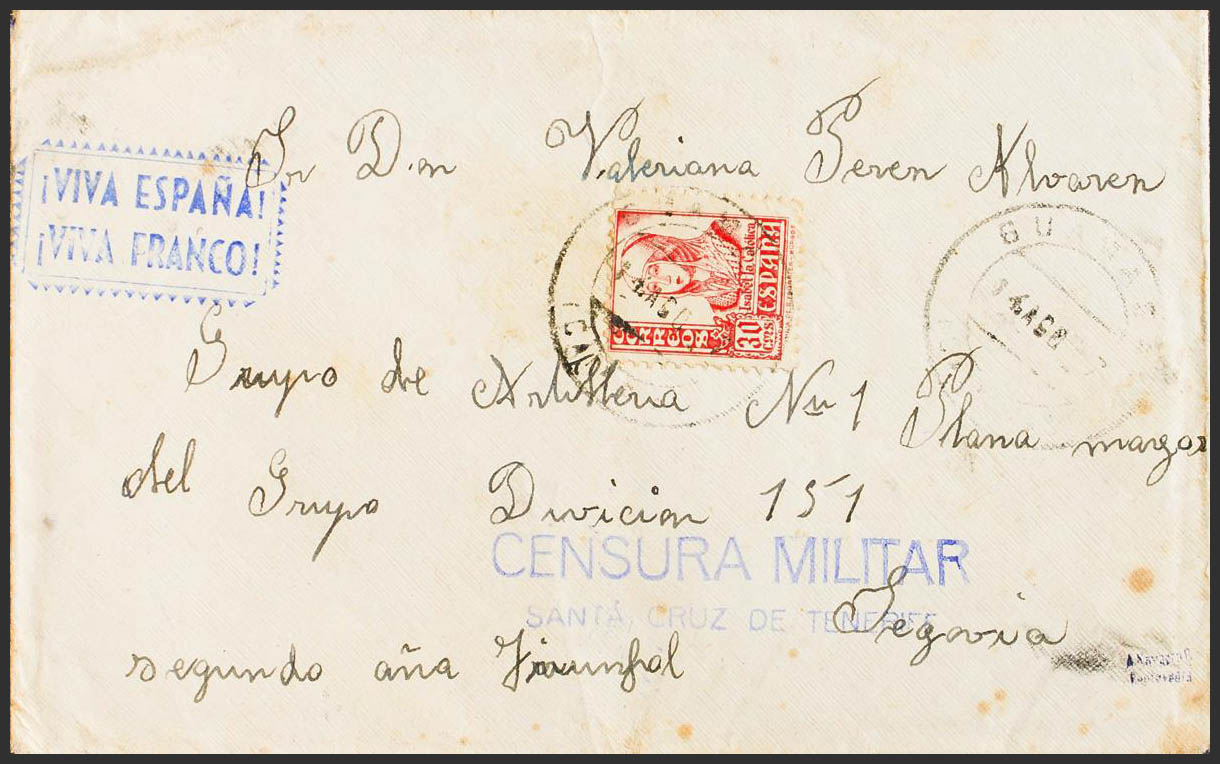 ¡VIVA ESPAÑA!
¡VIVA FRANCO!
Sr Don Valeriana Peren Alvaren
Isabel la Católica
ESPAÑA
CORREOS
30 CTS
GU
4 AGO
Grupo de Artilleria Nu 1 Plana magor
del Grupo Divicion 151
CENSURA MILITAR
SANTA CRUZ DE TENERIFE
Segovia
segundo aña Jirunfal
Pontevedra